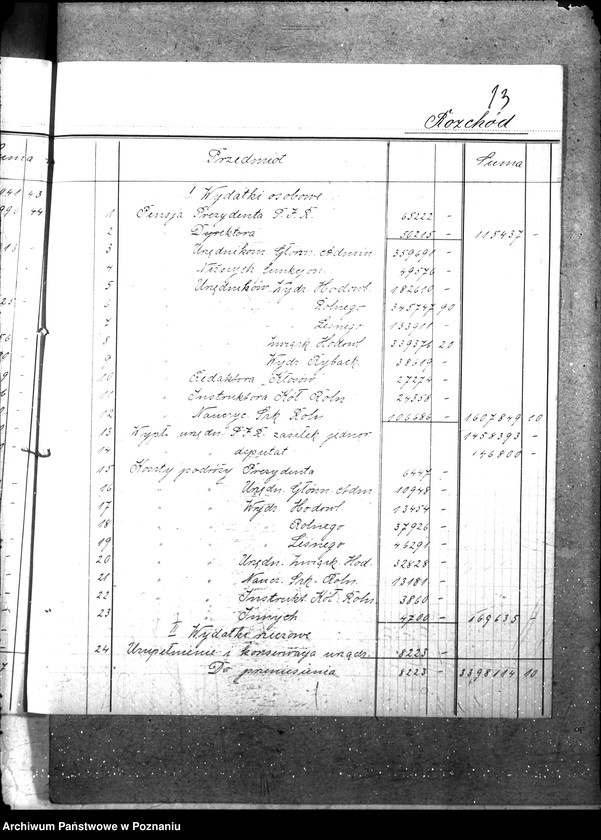 13
Rozchód
Przedmiot Suma
I Wydatki osobowe
1 Pensja Prezydenta P.I.R. 65222 -
2 " Dyrektora 50215 - 115437 -
3 " Urzędników Głównej Admin 359691 -
4 " Niższych funkcjon. 49576 -
5 " Urzędników Wydz. Hodowl 182610 -
6 " " " Rolnego 345747 90
7 " " " Leśnego 133911 -
8 " " Związk. Hodowl 339376 20
9 " " Wydz. Ryback. 38619 -
10 " Redaktora "Kłosów" 27274 -
11 " Instruktora Kół Roln 24358 -
12 " Nauczyc. Szk. Roln 106686 - 1607849 10
13 Wypł. urzędn. P.I.R. zasiłek jednor 1458393 -
14 " deputat 146800 -
15 Koszty podróży Prezydenta 6447 -
16 " " Urzędn. Główn. Adm 10948 -
17 " " Wydz. Hodowl 13454 -
18 " " " Rolnego 37926 -
19 " " " Leśnego 46291 -
20 " " Urzędn. Związk. Hod. 32828 -
21 " " Naucz. Szk. Roln. 13181 -
22 " " Instrukt. Kół. Roln. 3860 -
23 " " Innych 4700 - 169635 -
II Wydatki rzeczowe
24 Uzupełnienie i konserwacja urządz. 8223 -
Do przeniesienia 8223 - 3398114 10
Archiwum Państwowe w Poznaniu